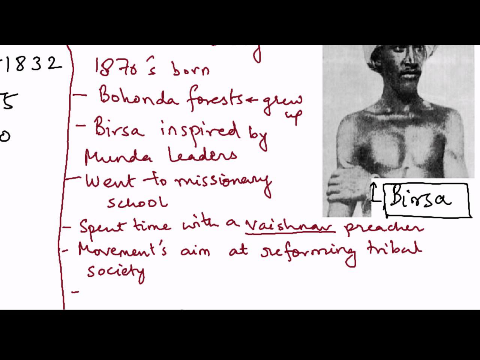 1832
5
0
1870's born
- Bohonda forests ← grew up
- Birsa inspired by
Munda leaders
- Went to missionary
school
- Spent time with a Vaishnav preacher
- Movement's aim at reforming tribal
society
-
Birsa